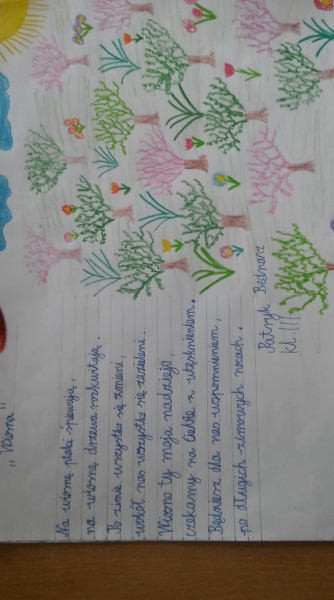 „Wiosna"
Na wiosnę ptaki śpiewają,
na wiosnę drzewa rozkwitają.
Po zimie wszystko się zmieni,
wokół nas wszystko się zazieleni.
Wiosno ty moja nadziejo,
czekamy na Ciebie z utęsknieniem.
Będziesz dla nas wspomnieniem,
po długich zimowych nocach.
Patryk Bednarz
kl. III